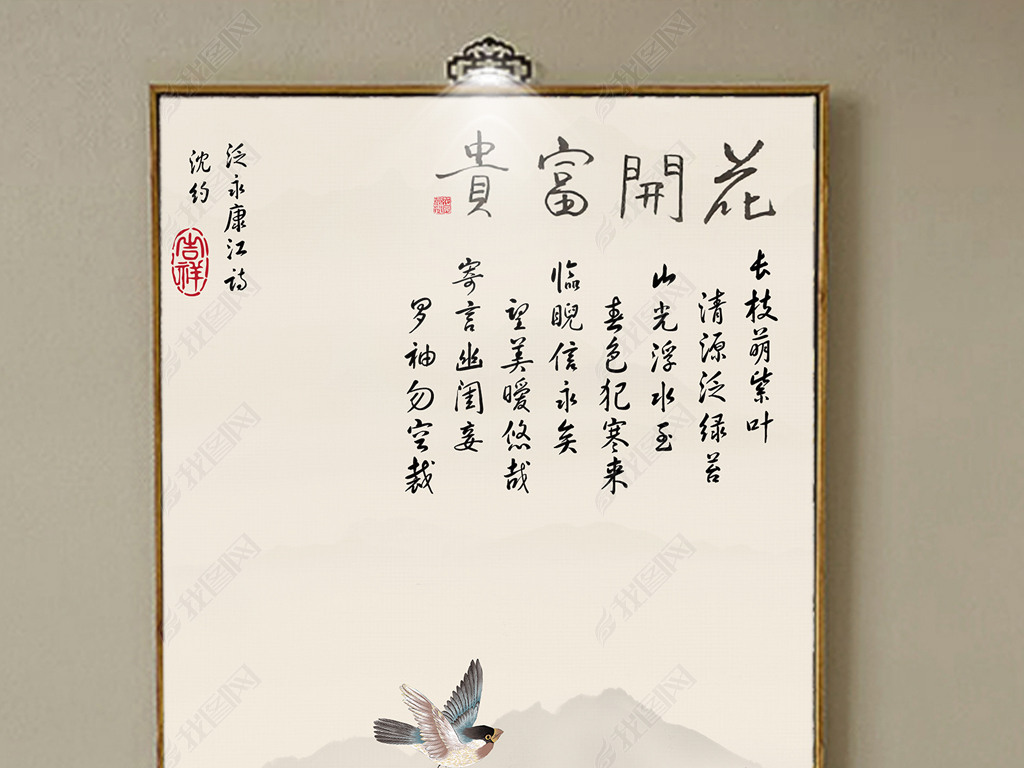 花開富貴
长枝萌紫叶
清源泛绿苔
山光浮水至
春色犯寒来
临睨信永矣
望美暧悠哉
寄言幽闺妾
罗袖勿空裁
泛永康江诗
沈约
吉祥
我图网